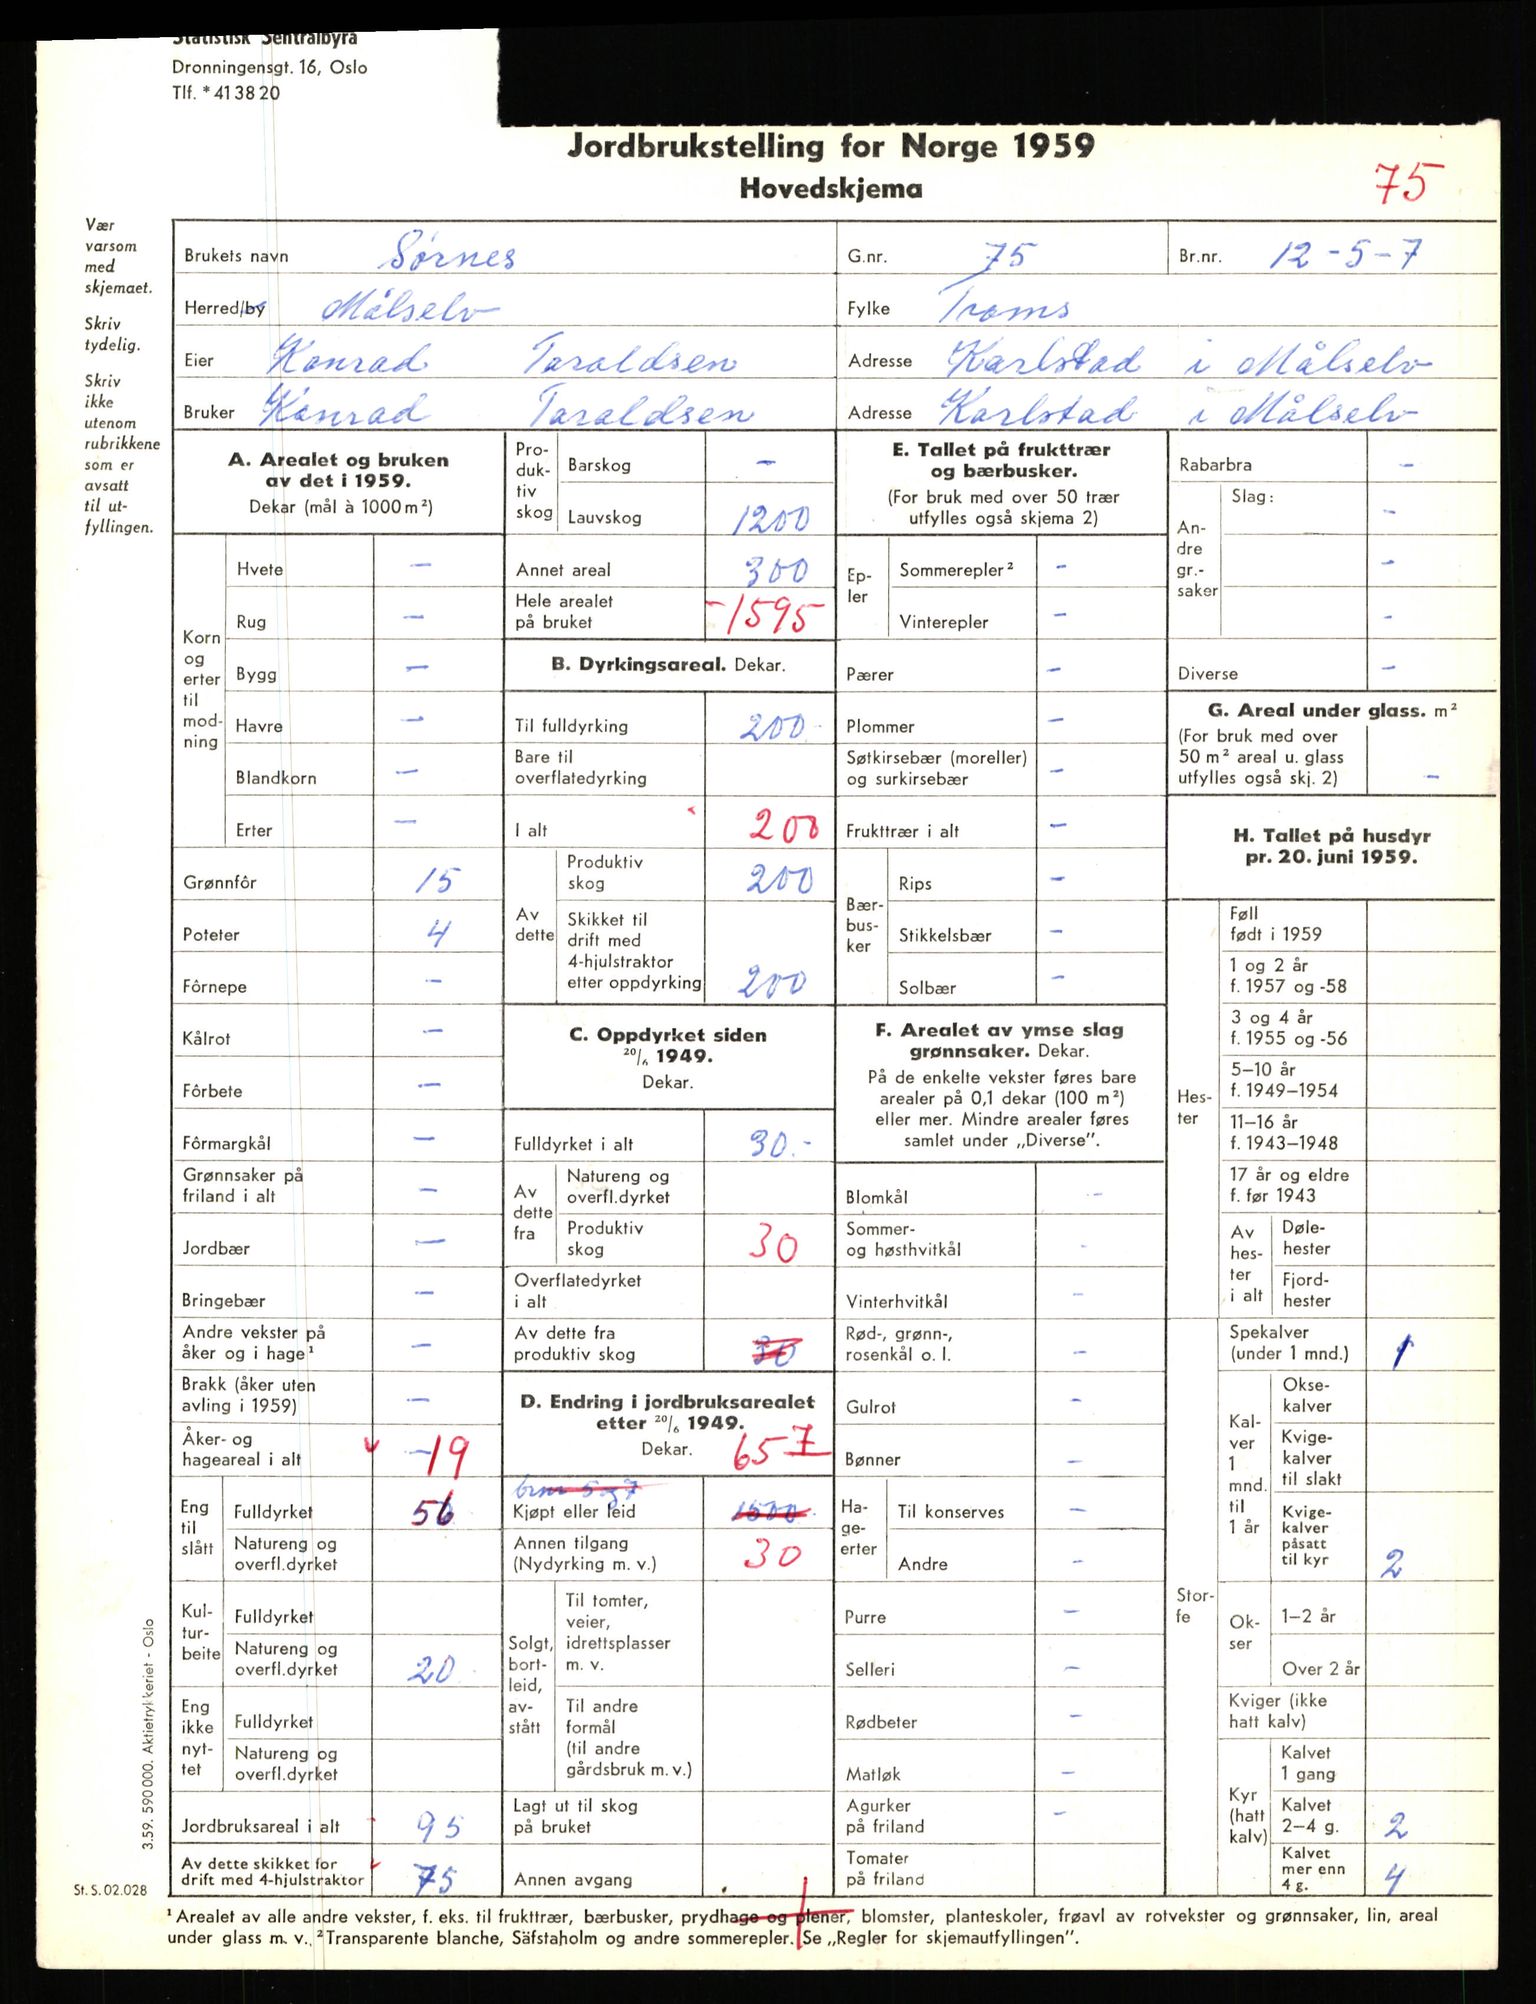 Statistisk Sentralbyrå
Dronningensgt. 16, Oslo
Tlf. *41 38 20
Jordbrukstelling for Norge 1959
Hovedskjema
75
Vær
varsom
med
skjemaet.
Skriv
tydelig.
Skriv
ikke
utenom
rubrikkene
som er
avsatt
til ut-
fyllingen.
Brukets navn Sørnes G.nr. 75 Br.nr. 12-5-7
Herred/by Målselv Fylke Troms
Eier Konrad Taraldsen Adresse Karlstad i Målselv
Bruker Konrad Taraldsen Adresse Karlstad i Målselv
A. Arealet og bruken
av det i 1959.
Dekar (mål à 1000 m²)
Korn
og
erter
til
mod-
ning
Hvete –
Rug –
Bygg –
Havre –
Blandkorn –
Erter –
Grønnfôr 15
Poteter 4
Fôrnepe –
Kålrot –
Fôrbete –
Fôrmargkål –
Grønnsaker på
friland i alt –
Jordbær –
Bringebær –
Andre vekster på
åker og i hage¹ –
Brakk (åker uten
avling i 1959) –
Åker- og
hageareal i alt 19
Eng
til
slått
Fulldyrket 56
Natureng og
overfl.dyrket
Kul-
tur-
beite
Fulldyrket
Natureng og
overfl.dyrket 20
Eng
ikke
nyt-
tet
Fulldyrket
Natureng og
overfl.dyrket
Jordbruksareal i alt 95
Av dette skikket for
drift med 4-hjulstraktor 75
Pro-
duk-
tiv
skog
Barskog –
Lauvskog 1200
Annet areal 300
Hele arealet
på bruket 1595
B. Dyrkingsareal. Dekar.
Til fulldyrking 200
Bare til
overflatedyrking
I alt 200
Av
dette
Produktiv
skog 200
Skikket til
drift med
4-hjulstraktor
etter oppdyrking 200
C. Oppdyrket siden
20/6 1949.
Dekar.
Fulldyrket i alt 30.-
Av
dette
fra
Natureng og
overfl.dyrket
Produktiv
skog 30
Overflatedyrket
i alt
Av dette fra
produktiv skog 30
D. Endring i jordbruksarealet
etter 20/6 1949.
Dekar. 65
brnr 5 og 7
Kjøpt eller leid 1500
Annen tilgang
(Nydyrking m. v.) 30
Solgt,
bort-
leid,
av-
stått
Til tomter,
veier,
idrettsplasser
m. v.
Til andre
formål
(til andre
gårdsbruk m. v.)
Lagt ut til skog
på bruket
Annen avgang
E. Tallet på frukttrær
og bærbusker.
(For bruk med over 50 trær
utfylles også skjema 2)
Ep-
ler
Sommerepler² –
Vinterepler –
Pærer –
Plommer –
Søtkirsebær (moreller)
og surkirsebær –
Frukttrær i alt –
Bær-
bus-
ker
Rips –
Stikkelsbær –
Solbær –
F. Arealet av ymse slag
grønnsaker. Dekar.
På de enkelte vekster føres bare
arealer på 0,1 dekar (100 m²)
eller mer. Mindre arealer føres
samlet under „Diverse”.
Blomkål –
Sommer-
og høsthvitkål -
Vinterhvitkål –
Rød-, grønn-,
rosenkål o. l. –
Gulrot –
Bønner –
Ha-
ge-
erter
Til konserves –
Andre –
Purre –
Selleri –
Rødbeter –
Matløk –
Agurker
på friland –
Tomater
på friland
Rabarbra –
An-
dre
gr.-
saker
Slag:
–
–
–
Diverse –
G. Areal under glass. m²
(For bruk med over
50 m² areal u. glass
utfylles også skj. 2) –
H. Tallet på husdyr
pr. 20. juni 1959.
Hes-
ter
Føll
født i 1959
1 og 2 år
f. 1957 og -58
3 og 4 år
f. 1955 og -56
5–10 år
f. 1949–1954
11–16 år
f. 1943–1948
17 år og eldre
f. før 1943
Av
hes-
ter
i alt
Døle-
hester
Fjord-
hester
Stor-
fe
Spekalver
(under 1 mnd.) 1
Kal-
ver
1
mnd.
til
1 år
Okse-
kalver
Kvige-
kalver
til slakt
Kvige-
kalver
påsatt
til kyr 2
Ok-
ser
1–2 år
Over 2 år
Kviger (ikke
hatt kalv)
Kyr
(hatt
kalv)
Kalvet
1 gang
Kalvet
2–4 g. 2
Kalvet
mer enn
4 g. 4
3.59. 590 000. Aktietrykkeriet - Oslo
St. S. 02.028
¹ Arealet av alle andre vekster, f. eks. til frukttrær, bærbusker, prydhage og plener, blomster, planteskoler, frøavl av rotvekster og grønnsaker, lin, areal
under glass m. v. ² Transparente blanche, Säfstaholm og andre sommerepler. Se „Regler for skjemautfyllingen”.